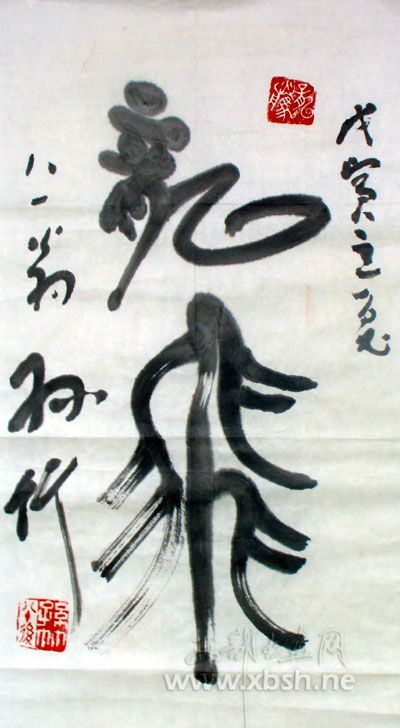 戊寅立夏
龍飛
八一翁
孙竹
西部书画网
www.xbsh.ne